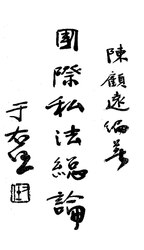 陳顧遠編著
國際私法総論
于右任